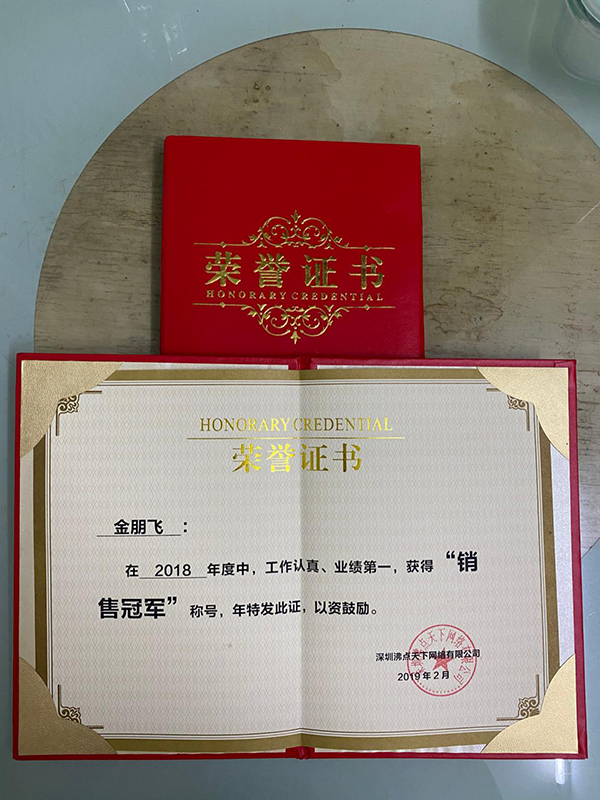 荣誉证书
HONORARY CREDENTIAL
HONORARY CREDENTIAL
荣誉证书
金朋飞：
在 2018 年度中，工作认真、业绩第一，获得“销
售冠军”称号，年特发此证，以资鼓励。
深圳沸点天下网络有限公司
2019年2月